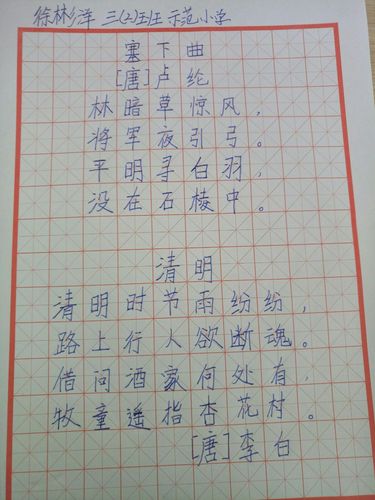 徐彬洋 三(2)班 示范小学
塞下曲
[唐]卢纶
林暗草惊风，
将军夜引弓。
平明寻白羽，
没在石棱中。
清明
清明时节雨纷纷，
路上行人欲断魂。
借问酒家何处有，
牧童遥指杏花村。
[唐]李白